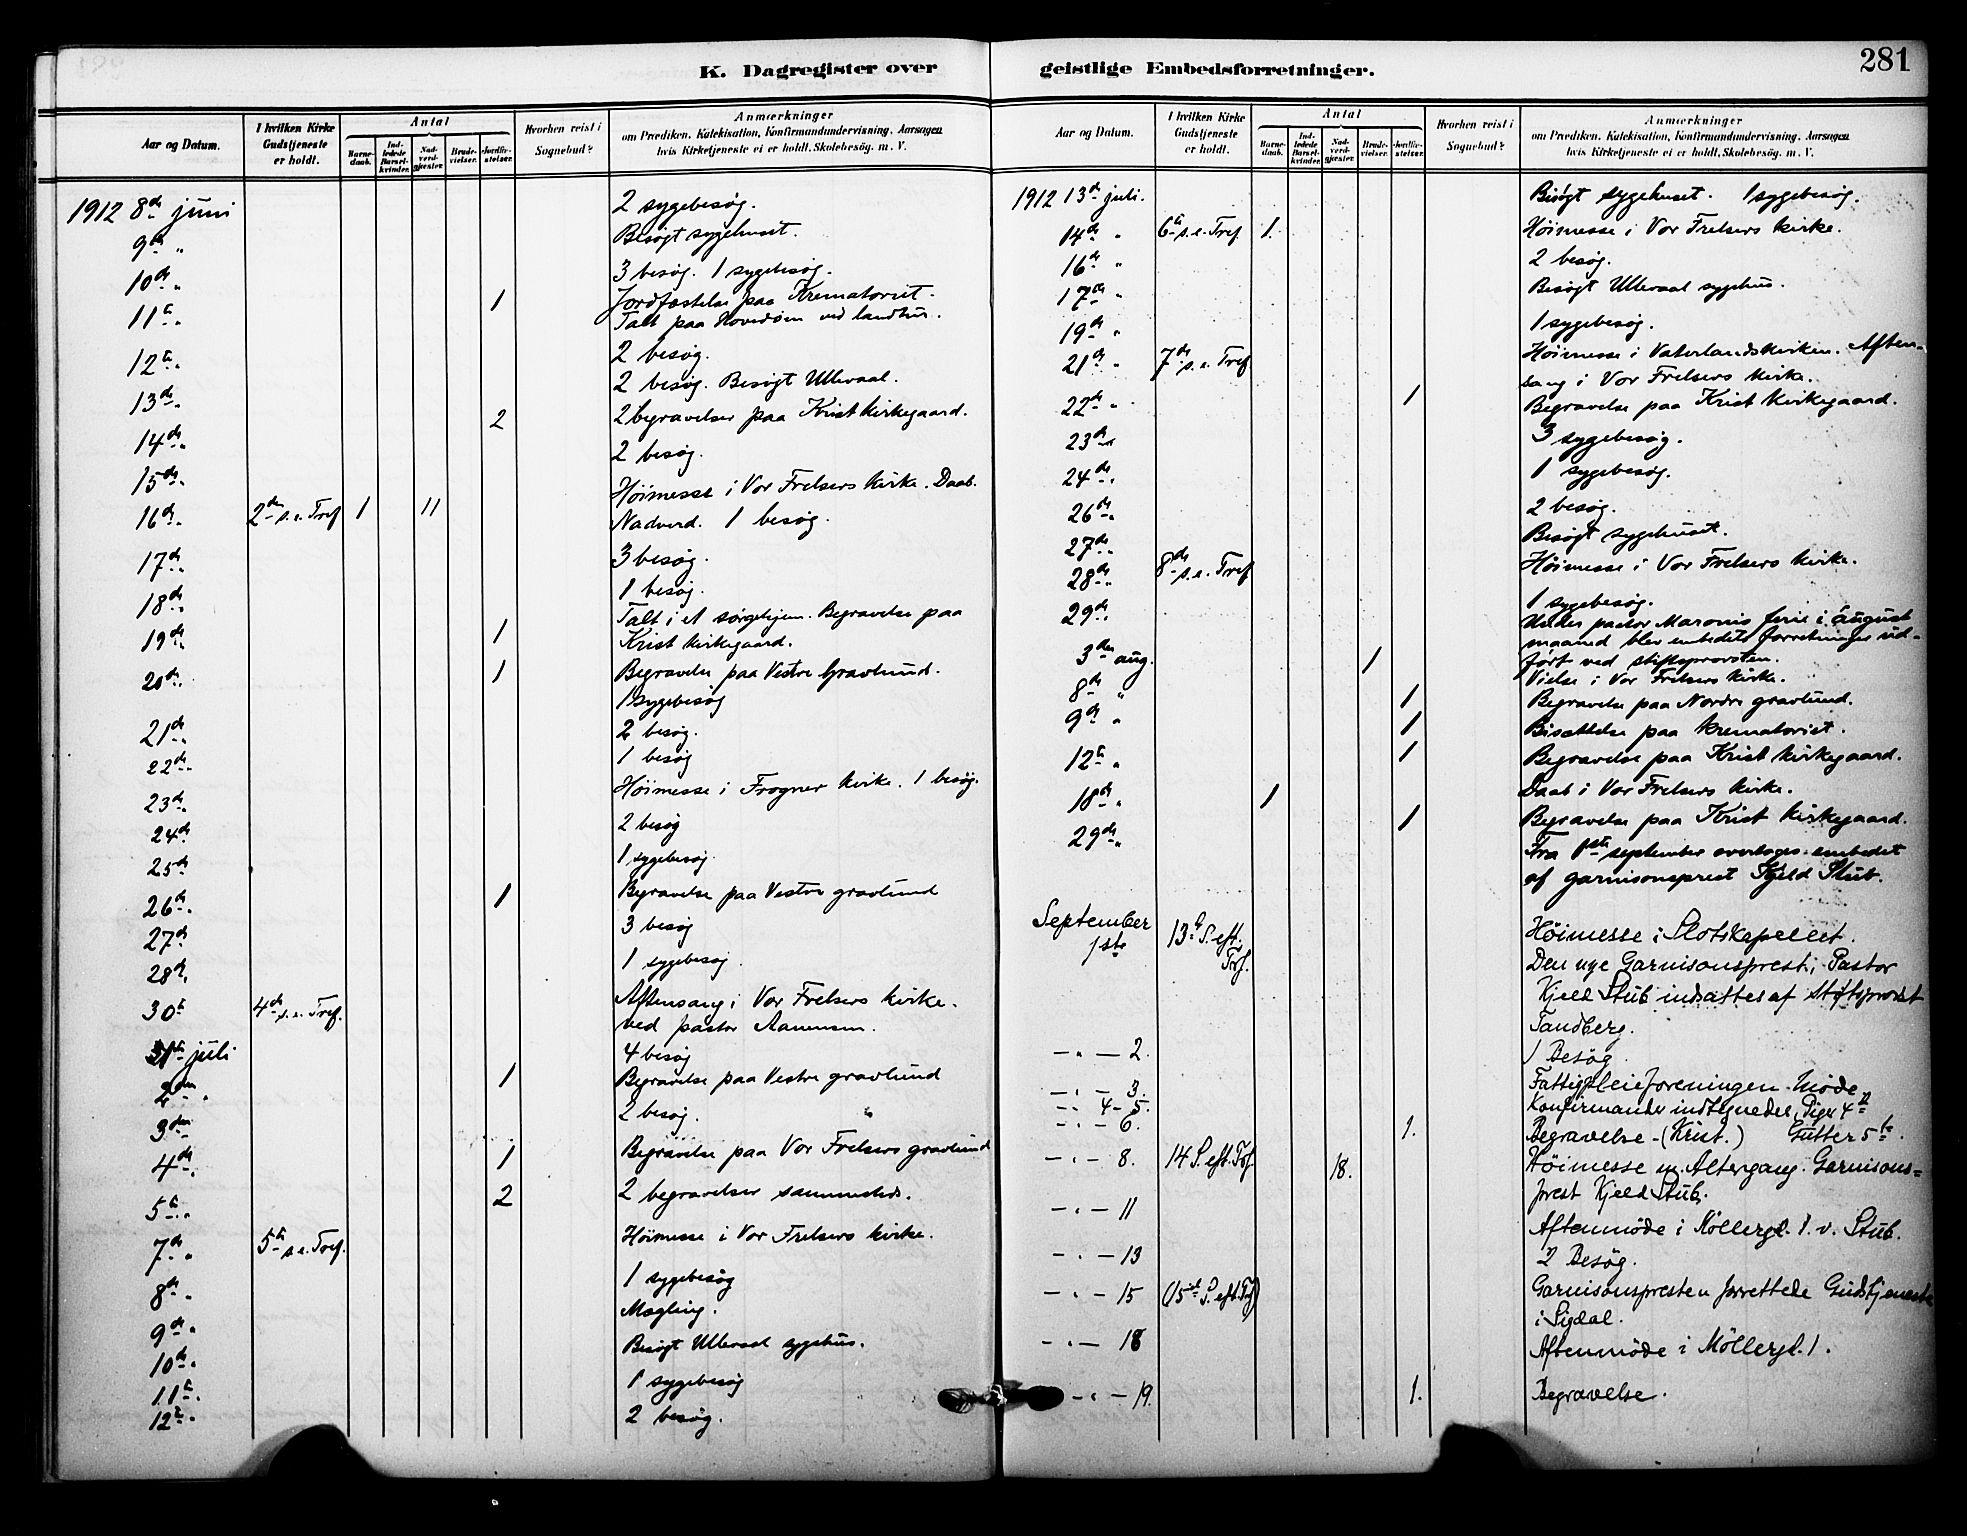 281
K. Dagregister over geistlige Embedsforretninger.
Aar og Datum.
I hvilken Kirke Gudstjeneste er holdt.
Antal
Barnedaab.
Indledede Barselkvinder.
Nadverdgjester.
Brudevielser.
Jordfæstelser.
Hvorhen reist i Sognebud?
Anmærkninger
om Prædiken, Katekisation, Konfirmandundervisning, Aarsagen
hvis Kirketjeneste ei er holdt, Skolebesög. m. V.
1912 8de juni 2 sygebesøg.
9de " Besøgt sygehuset.
10de " 3 besøg. 1 sygebesøg.
11te " 1 Jordfæstelse paa Krematoriet.
Talt paa Hovedøen ved landhus.
12te " 2 besøg.
13de " 2 besøg. Besøgt Ullevaal.
14de " 2 2 begravelser paa Krist kirkegaard.
15de " 2 besøg.
16de " 2den s. e. Tref 1 11 Høimesse i Vor Frelsers kirke. Daab.
Nadverd. 1 besøg.
17de " 3 besøg.
18de " 1 besøg.
19de " 1 Talt i et sørgehjem. Begravelse paa
Krist kirkegaard.
20de " 1 Begravelse paa Vestre Gravlund.
1 sygebesøg
21de " 2 besøg.
22de " 1 besøg
23de " Høimesse i Frogner kirke. 1 besøg.
24de 2 besøg
25de 1 sygebesøg.
26de " 1 Begravelse paa Vestre gravlund
27de 3 besøg
28de " 1 sygebesøg.
30te 4de s. e. Tref. Aftensang i Vor Frelsers kirke.
ved pastor
1ste juli 4 besøg
2den " 1 Begravelse paa Vestre gravlund
3den 2 besøg.
4de " 1 Begravelse paa Vor Frelsers gravlund
5te " 2 2 begravelser sammesteds.
7de " 5te s. e. Tref. Høimesse i Vor Frelsers kirke.
8de " 1 sygebesøg
9de " Mægling.
10de " Besøgt Ullevaal sygehus.
11te " 1 sygebesøg
12te " 2 besøg.
Aar og Datum.
I hvilken Kirke Gudstjeneste er holdt.
Antal
Barnedaab.
Indledede Barselkvinder.
Nadverdgjester.
Brudevielser.
Jordfæstelser.
Hvorhen reist i Sognebud?
Anmærkninger
om Prædiken, Katekisation, Konfirmandundervisning, Aarsagen
hvis Kirketjeneste ei er holdt, Skolebesög. m. V.
1912 13de juli. Besøgt sygehuset. 1 sygebesøg.
14de " 6te s. e. Tref 1. Høimesse i Vor Frelsers kirke.
16de " 2 besøg.
17de " Besøgt Ullevaal sygehus.
19de " 1 sygebesøg.
21de " 7de s. e. Tref Høimesse i Vaterlandskirken. Aften-
sang i Vor Frelsers kirke.
22de " 1 Begravelse paa Krist kirkegaard.
23de " 3 sygebesøg.
24de " 1 sygebesøg.
26de " 2 besøg.
27de " Besøgt sygehuset.
28de " 8de s. e. Tref Høimesse i Vor Frelsers kirke.
29de " 1 sygebesøg.
Under pastor Maronis ferie i august
maaned blev embedets forretninger ud-
ført ved stiftsprovsten.
3die aug. 1 Vielse i Vor Frelsers kirke.
8de " 1 Begravelse paa Nordre gravlund.
9de " 1 Bisættelse paa krematoriet.
12te " 1 Begravelse paa Krist kirkegaard.
18de " 1 Daab i Vor Frelsers kirke.
29de " 1 Begravelse paa Krist kirkegaard.
Fra 1ste september overtoges embedet
af garnisonsprest Kjeld Stub.
September 1ste 13de S. eft. Tref. Høimesse i Slotskapellet.
Den nye Garnisonsprest, Pastor
Kjeld Stub indsattes af Stiftsprovst
Tandberg.
- " - 2. 1 Besøg.
- " - 3. Fattigpleieforeningen. Møde
- " 4 - 5. Konfirmander indtegnedes, Piger 4de
- " - 6. 1. Begravelse - (Krist.) Gutter 5te.
- " - 8. 14 S. eft. Tref. 18. Høimesse m. Altergang. Garnisons-
prest Kjeld Stub.
- " - 11 Aftenmøde i Møllergt. 1. v. Stub.
- " - 13 2 Besøg.
- " - 15 (15de S. eft. Tref) Garnisonspresten forrettede Gudstjeneste
i Sigdal.
- " - 18 Aftenmøde i Møllergt. 1.
- " - 19. 1. Begravelse.